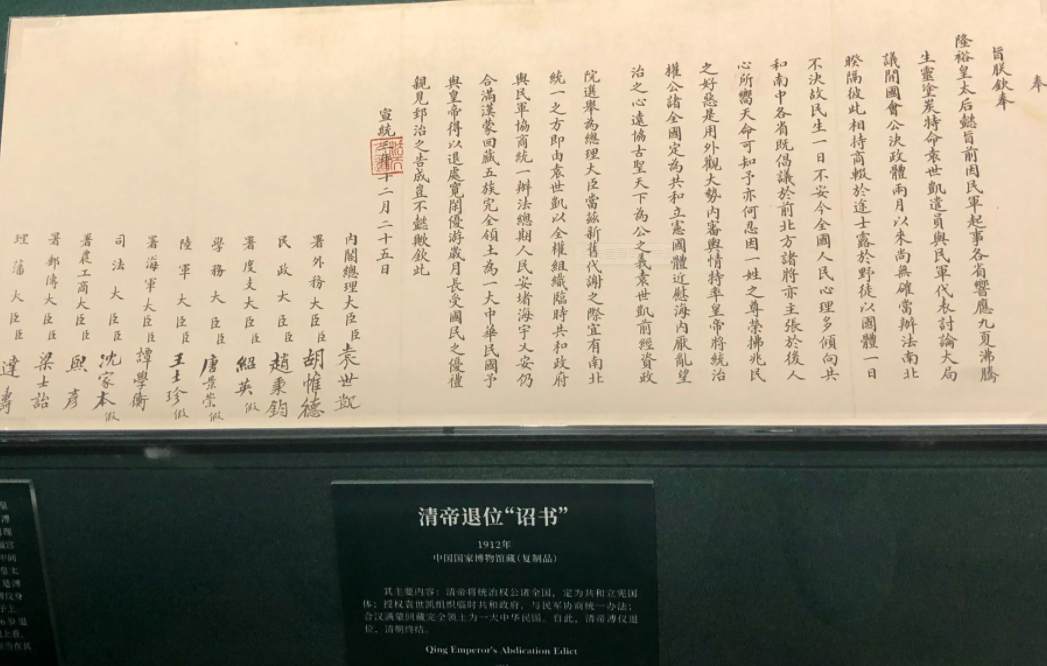 奉
旨朕欽奉
隆裕皇太后懿旨前因民軍起事各省響應九夏沸騰
生靈塗炭特命袁世凱遣員與民軍代表討論大局
議開國會公決政體兩月以來尚無確當辦法南北
暌隔彼此相持商輟於途士露於野徒以國體一日
不決故民生一日不安今全國人民心理多傾向共
和南中各省既倡議於前北方諸將亦主張於後人
心所嚮天命可知予亦何忍因一姓之尊榮拂兆民
之好惡是用外觀大勢內審輿情特率皇帝將統治
權公諸全國定為共和立憲國體近慰海內厭亂望
治之心遠協古聖天下為公之義袁世凱前經資政
院選舉為總理大臣當茲新舊代謝之際宜有南北
統一之方即由袁世凱以全權組織臨時共和政府
與民軍協商統一辦法總期人民安堵海宇乂安仍
合滿漢蒙回藏五族完全領土為一大中華民國予
與皇帝得以退處寬閒優游歲月長受國民之優禮
親見郅治之告成豈不懿歟欽此
宣統三年十二月二十五日
內閣總理大臣臣袁世凱
署外務大臣臣胡惟德
民政大臣臣趙秉鈞
署度支大臣臣紹英假
學務大臣臣唐景崇假
陸軍大臣臣王士珍假
署海軍大臣臣譚學衡
司法大臣臣沈家本假
署農工商大臣臣熙彥
署郵傳大臣臣梁士詒
理藩大臣臣達壽
清帝退位“诏书”
1912年
中国国家博物馆藏(复制品)
其主要内容：清帝将统治权公诸全国，定为共和立宪国
体；授权袁世凯组织临时共和政府，与民军协商统一办法；
合汉满蒙回藏完全领土为一大中华民国。自此，清帝溥仪退
位，清朝终结。
Qing Emperor's Abdication Edict